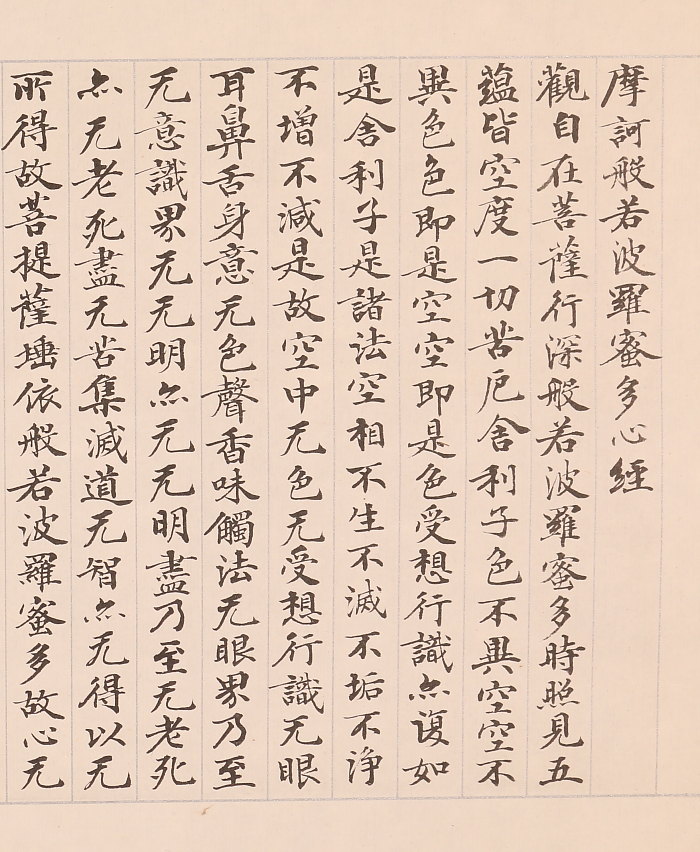 摩訶般若波羅蜜多心經
觀自在菩薩行深般若波羅蜜多時照見五
蘊皆空度一切苦厄舍利子色不異空空不
異色色即是空空即是色受想行識亦復如
是舍利子是諸法空相不生不滅不垢不淨
不增不減是故空中无色无受想行識无眼
耳鼻舌身意无色聲香味觸法无眼界乃至
无意識界无无明亦无无明盡乃至无老死
亦无老死盡无苦集滅道无智亦无得以无
所得故菩提薩埵依般若波羅蜜多故心无